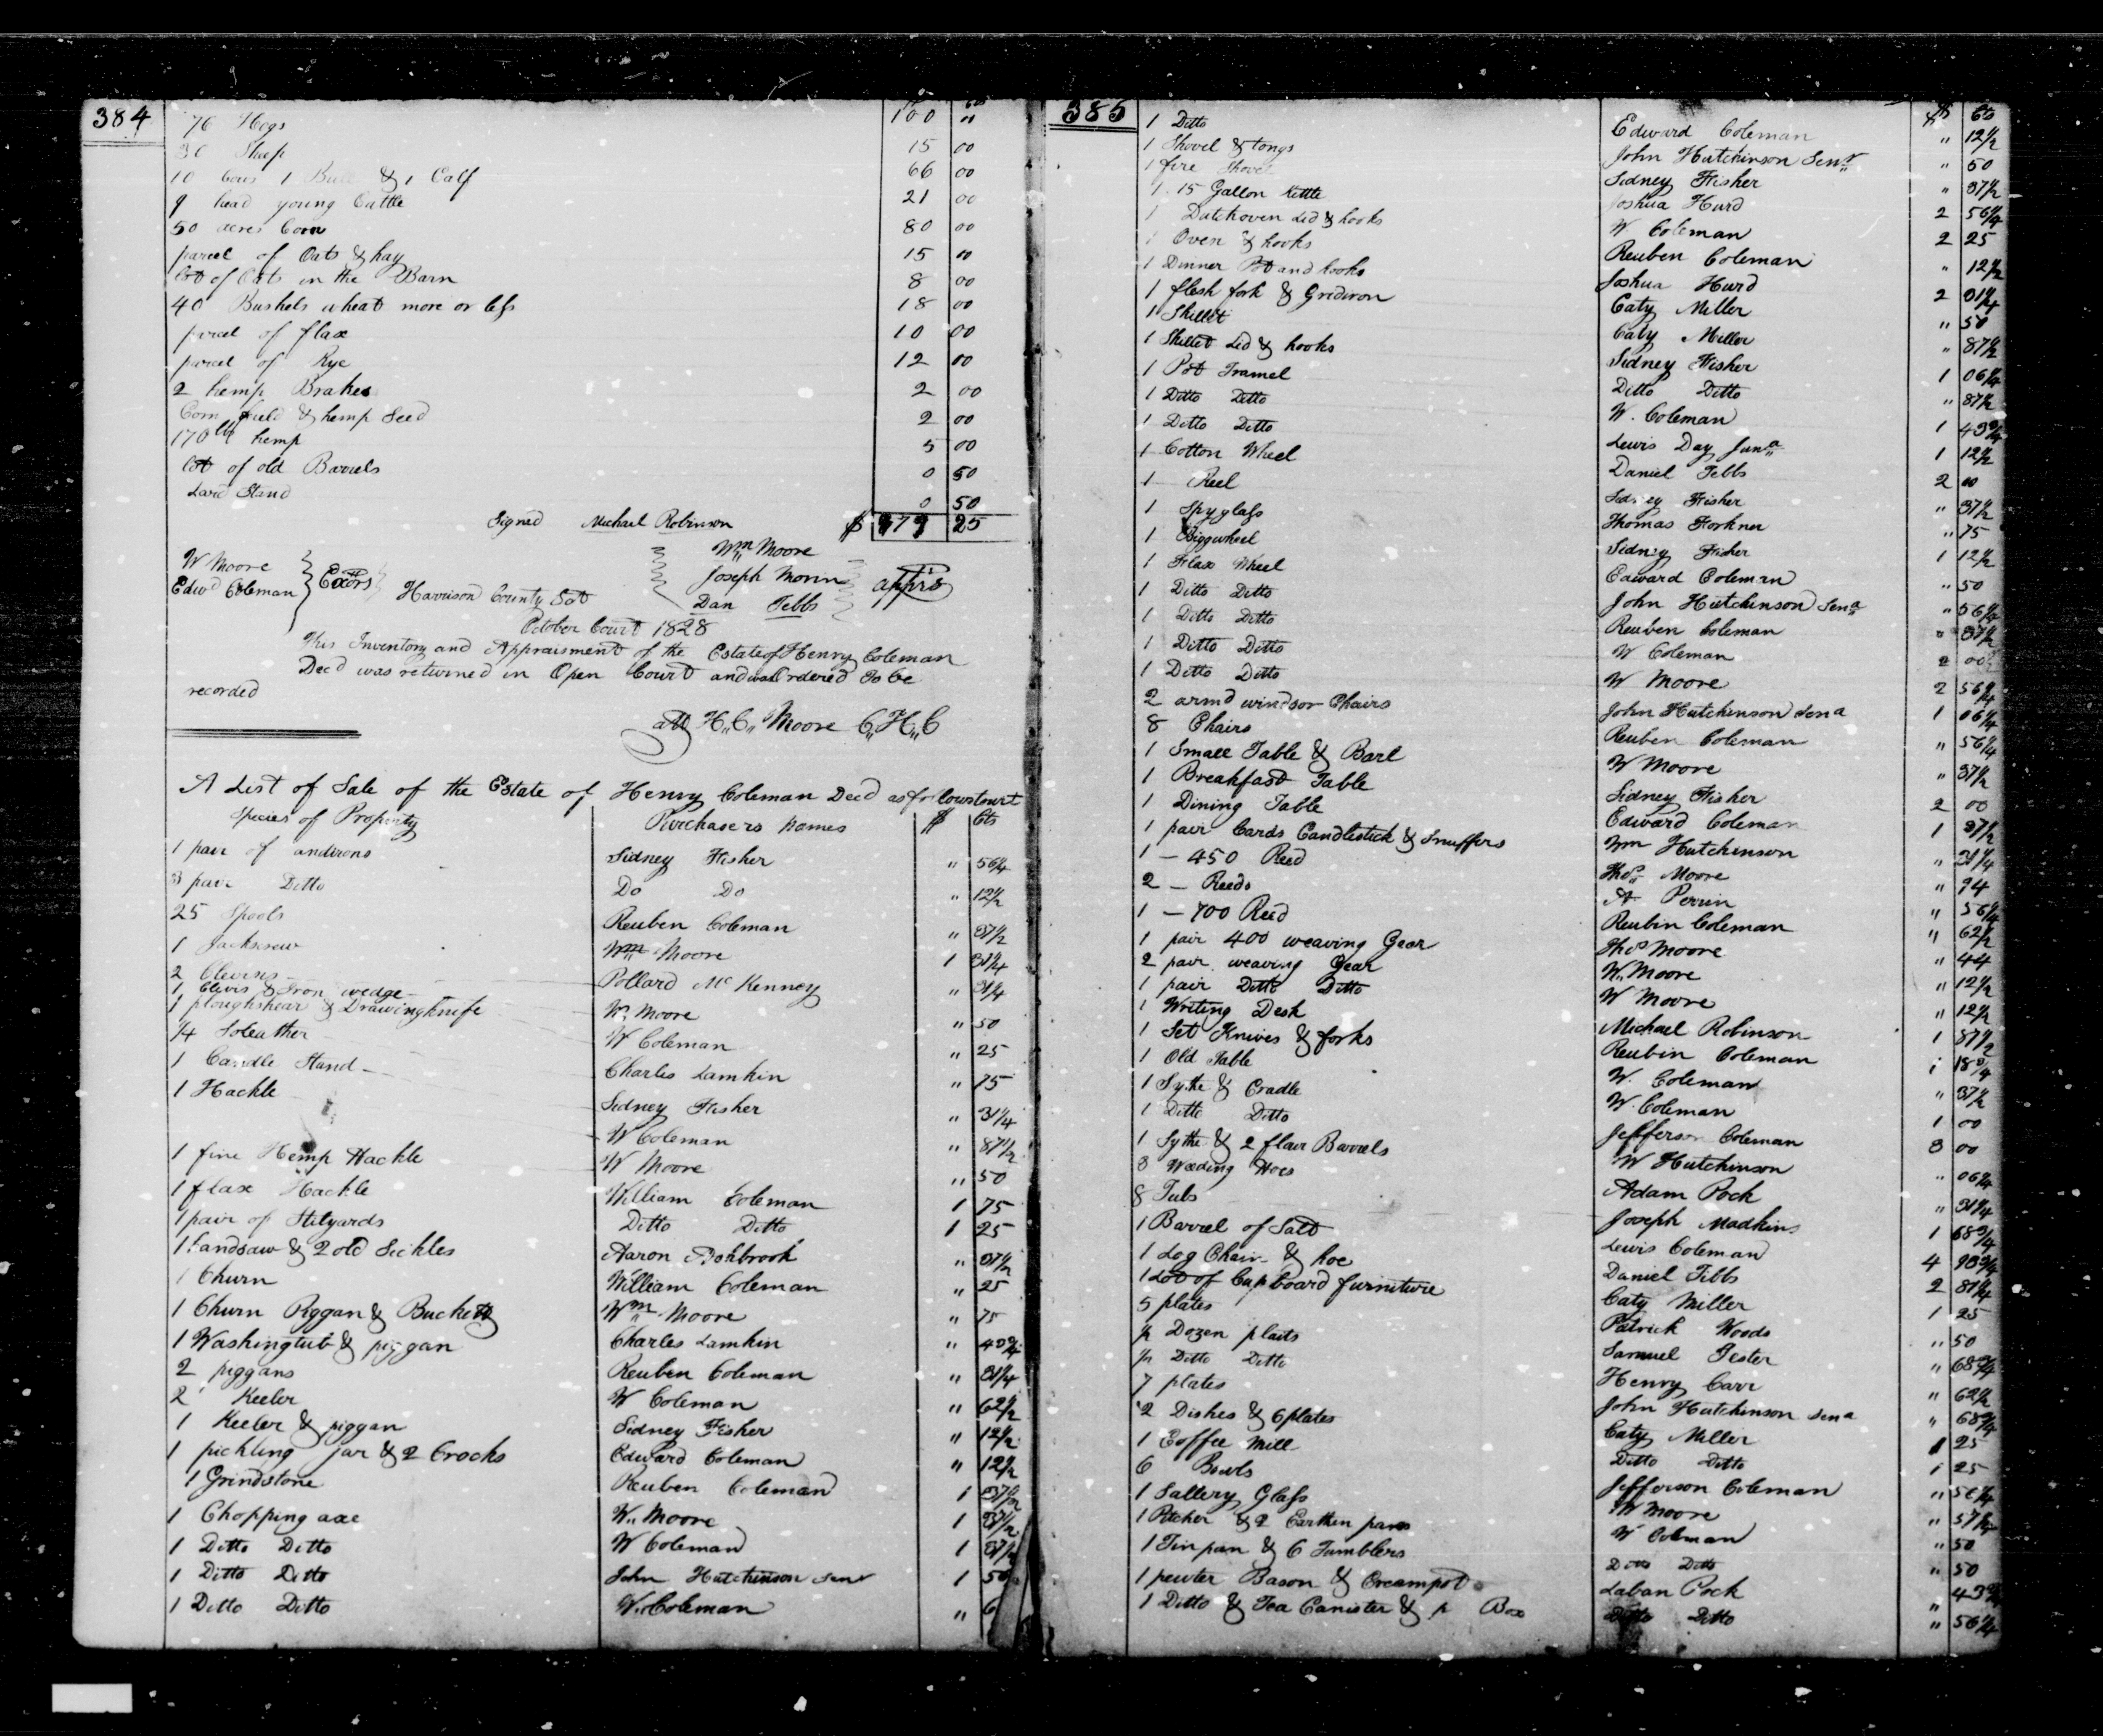 384
$ cts
76 Hogs 100 "
30 Sheep 15 00
10 Cows 1 Bull & 1 Calf 66 00
9 head young Cattle 21 00
50 acres Corn 80 00
parcel of Oats & hay 15 00
lot of Oats in the Barn 8 00
40 Bushels wheat more or less 18 00
parcel of flax 10 00
parcel of Rye 12 00
2 hemp Brakes 2 00
Corn field & hemp Seed 2 00
170 lb hemp 5 00
lot of old Barrels 0 50
Lard Stand 0 50
Signed Michael Robinson $ 979 25
W Moore
Edwd Coleman } Exors
Wm Moore
Joseph Morin
Dan Tebbs
apprs
Harrison County Sct
October Court 1828
This Inventory and Appraisment of the Estate of Henry Coleman
Decd was returned in Open Court and was Ordered To be
recorded
att H,,C,, Moore C,,H,,C
A List of Sale of the Estate of Henry Coleman Decd as follows towit
Species of Property Purchasers names $ Cts
1 pair of andirons Sidney Fisher " 56 1/4
3 pair Ditto Do Do " 12 1/2
25 Spools Reuben Coleman " 37 1/2
1 Jackscrew Wm Moore 1 31 1/4
2 Clevises Pollard McKenney " 31 1/4
1 Clevis & Iron wedge W,, Moore " 50
1 ploughshear & Drawingknife W Coleman " 25
1/4 Soleather Charles Lamkin " 75
1 Candle Stand Sidney Fisher " 31 1/4
1 Hackle W Coleman " 87 1/2
1 fine Hemp Hackle W Moore " 50
1 flax Hackle William Coleman 1 75
1 pair of Stilyards Ditto Ditto 1 25
1 handsaw & 2 old Sickles Aaron Ashbrook " 37 1/2
1 Churn William Coleman " 25
1 Churn Piggan & Bucket Wm Moore " 75
1 Washingtub & piggan Charles Lamkin " 43 3/4
2 piggans Reuben Coleman " 31 1/4
2 Keeler W Coleman " 62 1/2
1 Keeler & piggan Sidney Fisher " 12 1/2
1 pickling jar & 2 Crocks Edward Coleman " 12 1/2
1 Grindstone Reuben Coleman 1 37 1/2
1 Chopping axe W,, Moore 1 37 1/2
1 Ditto Ditto W Coleman 1 37 1/2
1 Ditto Ditto John Hutchinson Senr 1 50
1 Ditto Ditto W,, Coleman " 6
385
$ Cts
1 Ditto Edward Coleman " 12 1/2
1 Shovel & tongs John Hutchinson Senr " 50
1 fire Shovel Sidney Fisher " 37 1/2
1 15 Gallon kettle Joshua Hurd 2 56 1/4
1 Dutchoven Lid & hooks W Coleman 2 25
1 Oven & hooks Reuben Coleman " 12 1/2
1 Dinner Pot and hooks Joshua Hurd 2 31 1/4
1 flesh fork & Gridiron Caty Miller " 50
1 Skillet Caty Miller " 87 1/2
1 Skillet Lid & hooks Sidney Fisher 1 06 1/4
1 Pot Tramel Ditto Ditto " 87 1/2
1 Ditto Ditto W. Coleman 1 43 3/4
1 Ditto Ditto Lewis Day Junr 1 12 1/2
1 Cotton Wheel Daniel Tebbs 2 00
1 Reel Sidney Fisher " 37 1/2
1 Spyglass Thomas Forkner " 75
1 Biggwheel Sidney Fisher 1 12 1/2
1 Flax Wheel Edward Coleman " 50
1 Ditto Ditto John Hutchinson Senr " 56 1/4
1 Ditto Ditto Reuben Coleman " 37 1/2
1 Ditto Ditto W Coleman 2 00
1 Ditto Ditto W Moore 2 56 1/4
2 armd windsor Chairs John Hutchinson Senr 1 06 1/4
8 Chairs Reuben Coleman " 56 1/4
1 Small Table & Barl W Moore " 37 1/2
1 Breakfast Table Sidney Fisher 2 00
1 Dining Table Edward Coleman 1 37 1/2
1 pair Cards Candlestick & Snuffers Wm Hutchinson " 31 1/4
1 — 450 Reed Thos Moore " 94
2 — Reeds A Perrin " 56 1/4
1 — 700 Reed Reubin Coleman " 62 1/2
1 pair 400 weaving Gear Thos Moore " 44
2 pair weaving Gear W. Moore " 12 1/2
1 pair Ditto Ditto W Moore " 12 1/2
1 Writing Desk Michael Robinson 1 87 1/2
1 Set Knives & forks Reubin Coleman 1 18 3/4
1 Old Table W. Coleman " 37 1/2
1 Sythe & Cradle W. Coleman 1 00
1 Ditto Ditto Jefferson Coleman 3 00
1 Sythe & 2 flour Barrels W Hutchinson " 06 1/4
3 Weeding Hoes Adam Pock " 31 1/4
8 Tubs Joseph Madkins 1 68 3/4
1 Barrel of Salt Lewis Coleman 4 93 3/4
1 Log Chain & hoe Daniel Tibbs 2 81 1/4
1 Lot of Cupboard furniture Caty Miller 1 25
5 plates Patrick Woods " 50
1/2 Dozen plaits Samuel Jester " 68 3/4
1/2 Ditto Ditto Henry Carr " 62 1/2
7 plates John Hutchinson Senr " 68 3/4
2 Dishes & 6 plates Caty Miller 1 25
1 Coffee Mill Ditto Ditto 1 25
6 Bowls Jefferson Coleman " 56 1/4
1 Sallery Glass W Moore " 37 1/2
1 Pitcher & 2 Earthen pans W Coleman " 50
1 Tin pan & 6 Tumblers Ditto Ditto " 50
1 pewter Bason & Creampot Laban Pock " 43 3/4
1 Ditto & Tea Canister & p Box Ditto Ditto " 56 1/4